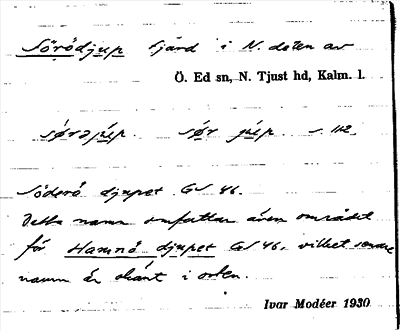 Sörödjup fjärd i N. delen av
Ö. Ed sn, N. Tjust hd, Kalm. l.
sørəjʉ́p. sør jʉ́p. s. 112.
Söderö djupet GS 46.
Detta namn omfattar även området
för Hamnö djupet GS 46, vilket senare
namn är okänt i orten.
Ivar Modéer 1930